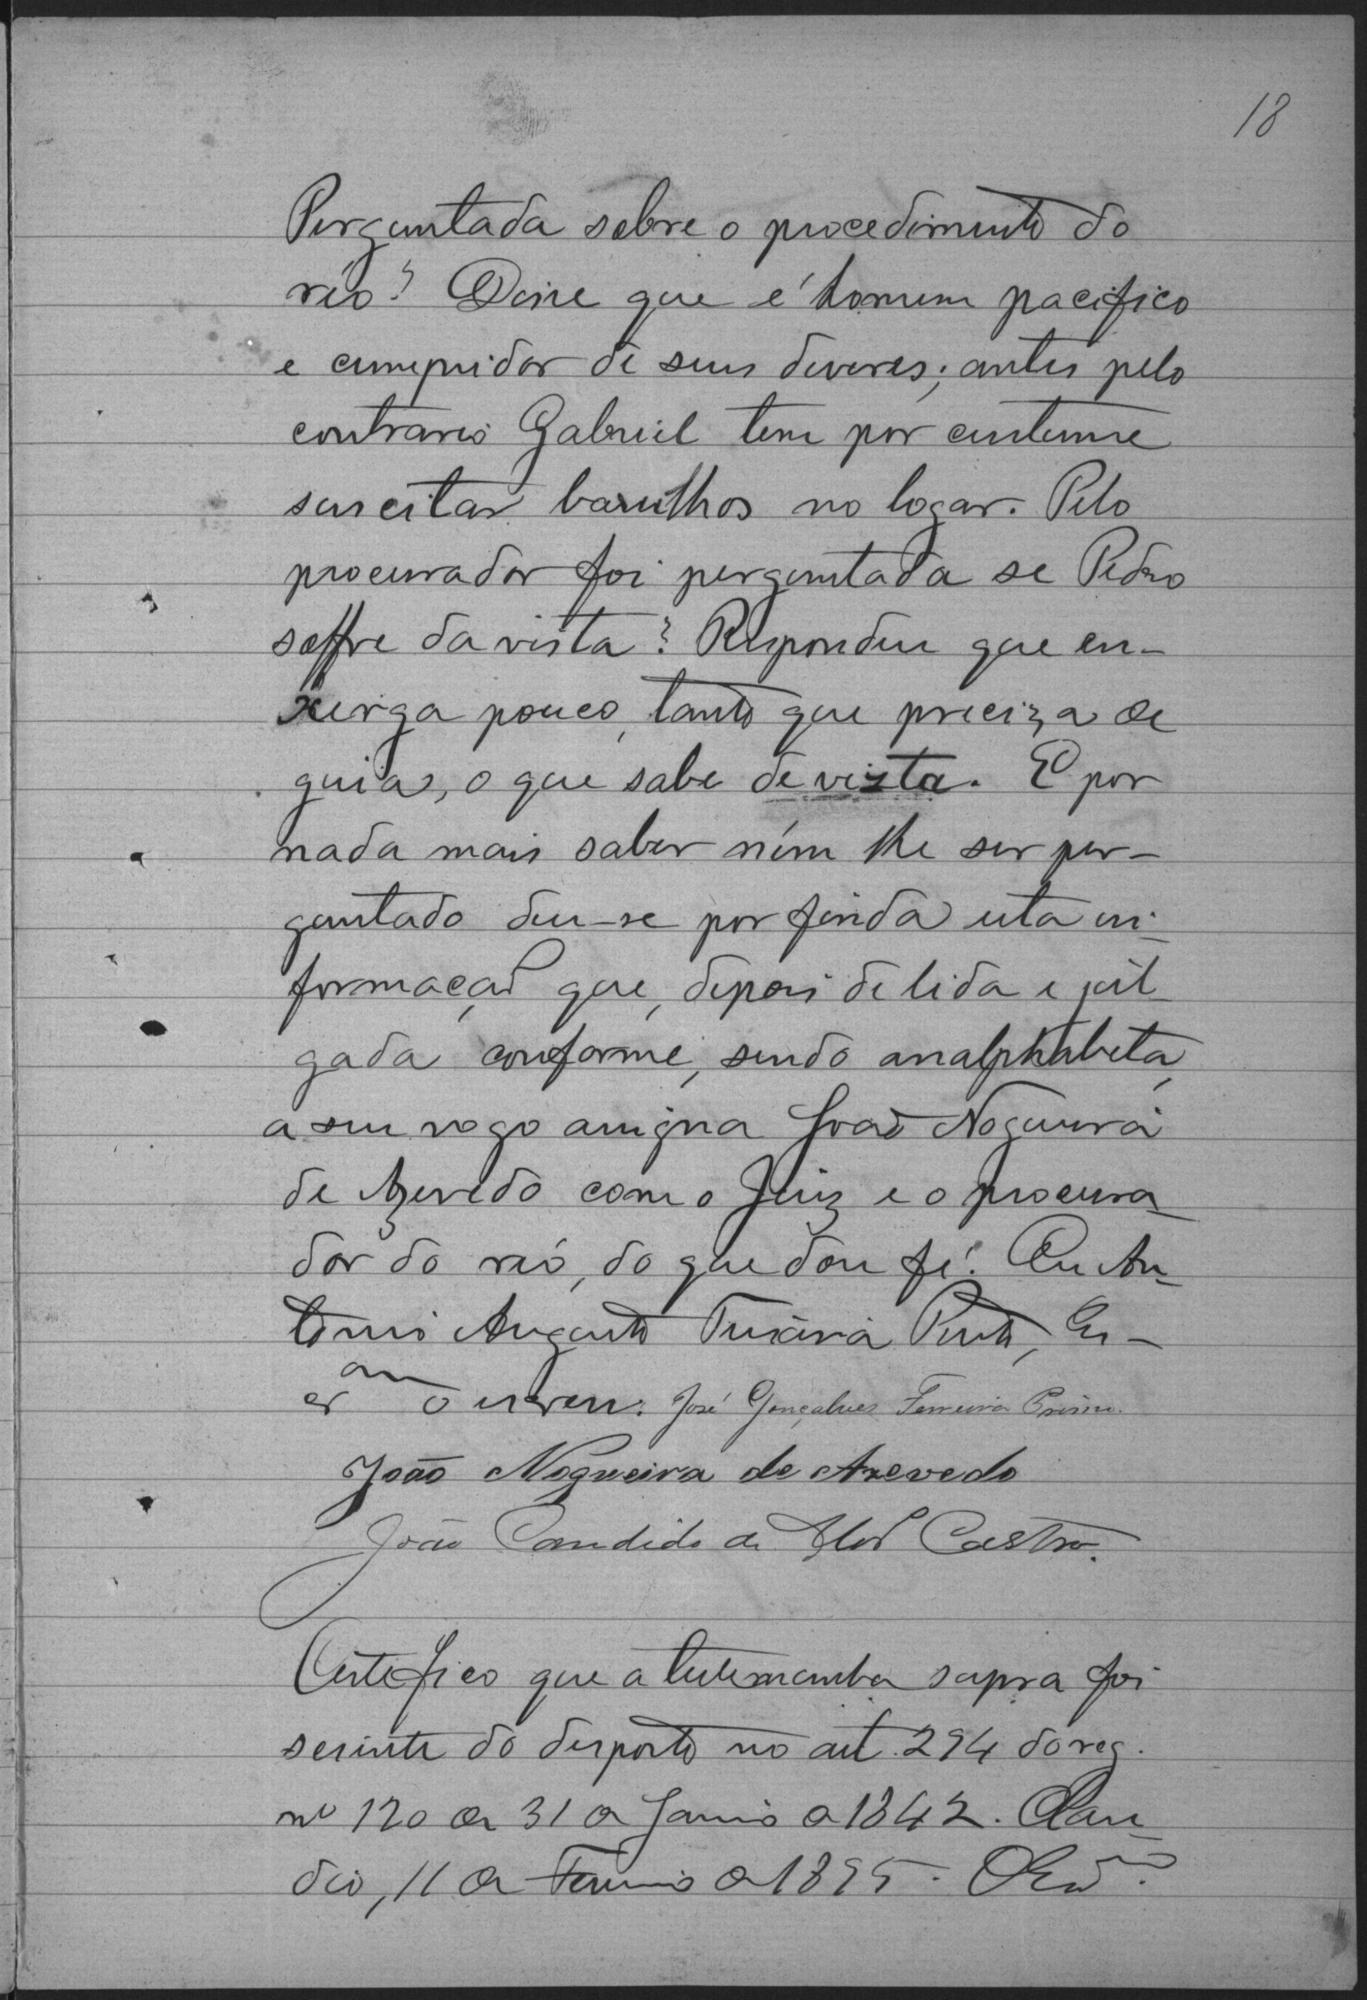 18
Perguntada sobre o procedimento do
réo? Disse que é homem pacifico
e cumpridor de seus deveres; antes pelo
contrario Gabriel tem por custume
suscitar barulhos no logar. Pelo
procurador foi perguntada se Pedro
soffre da vista? Respondeu que en-
xerga pouco, tanto que preciza de
guia, o que sabe de vista. E por
nada mais saber nem lhe ser per-
guntado deu-se por finda esta in-
formação que, depois de lida e jul-
gada conforme, sendo analphabeta,
a seu rogo assigna João Nogueira
de Azevedo com o Juiz e o procura-
dor do réo, do que dou fé. Eu An-
tonio Augusto Teixeira Pinto, Es-
cram o escrevi. José Gonçalves Ferreira Primo.
João Nogueira de Azevedo
João Candido de Castro.
Certefico que a testemunha supra foi
sciente do desposto no art. 294 do reg.
nº 120 de 31 de Janro de 1842. Clau-
dio, 11 de de 1895. O Esam.